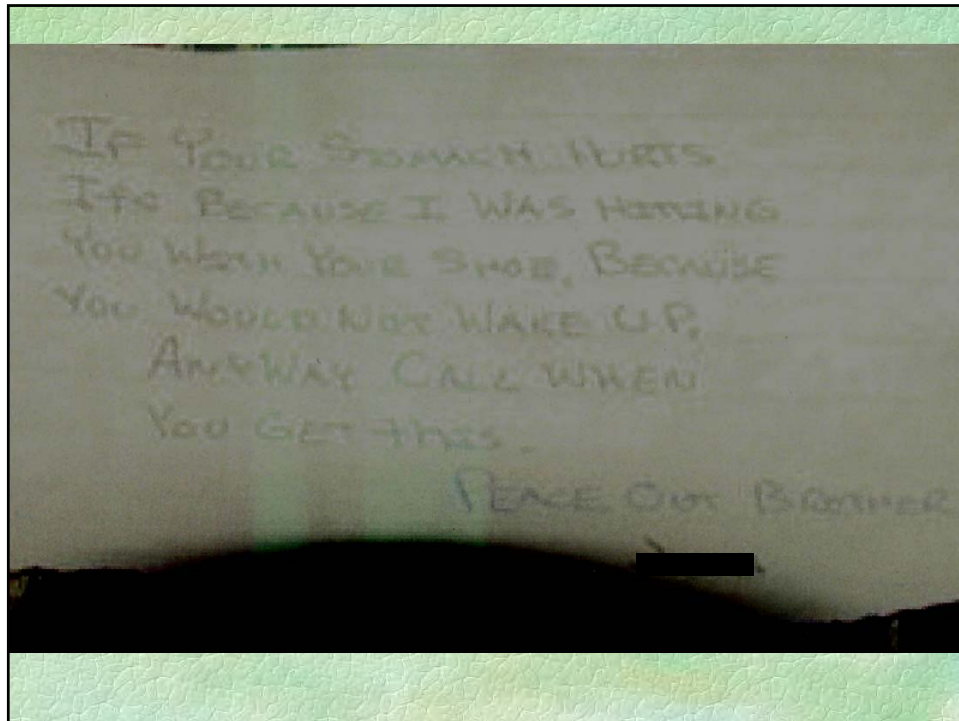 IF YOUR STOMACH HURTS
Its BECAUSE I WAS HITTING
YOU WITH YOUR SHOE, BECAUSE
YOU WOULD NOT WAKE UP.
ANYWAY CALL WHEN
YOU GET thIS.
PEACE OUT BROTHER